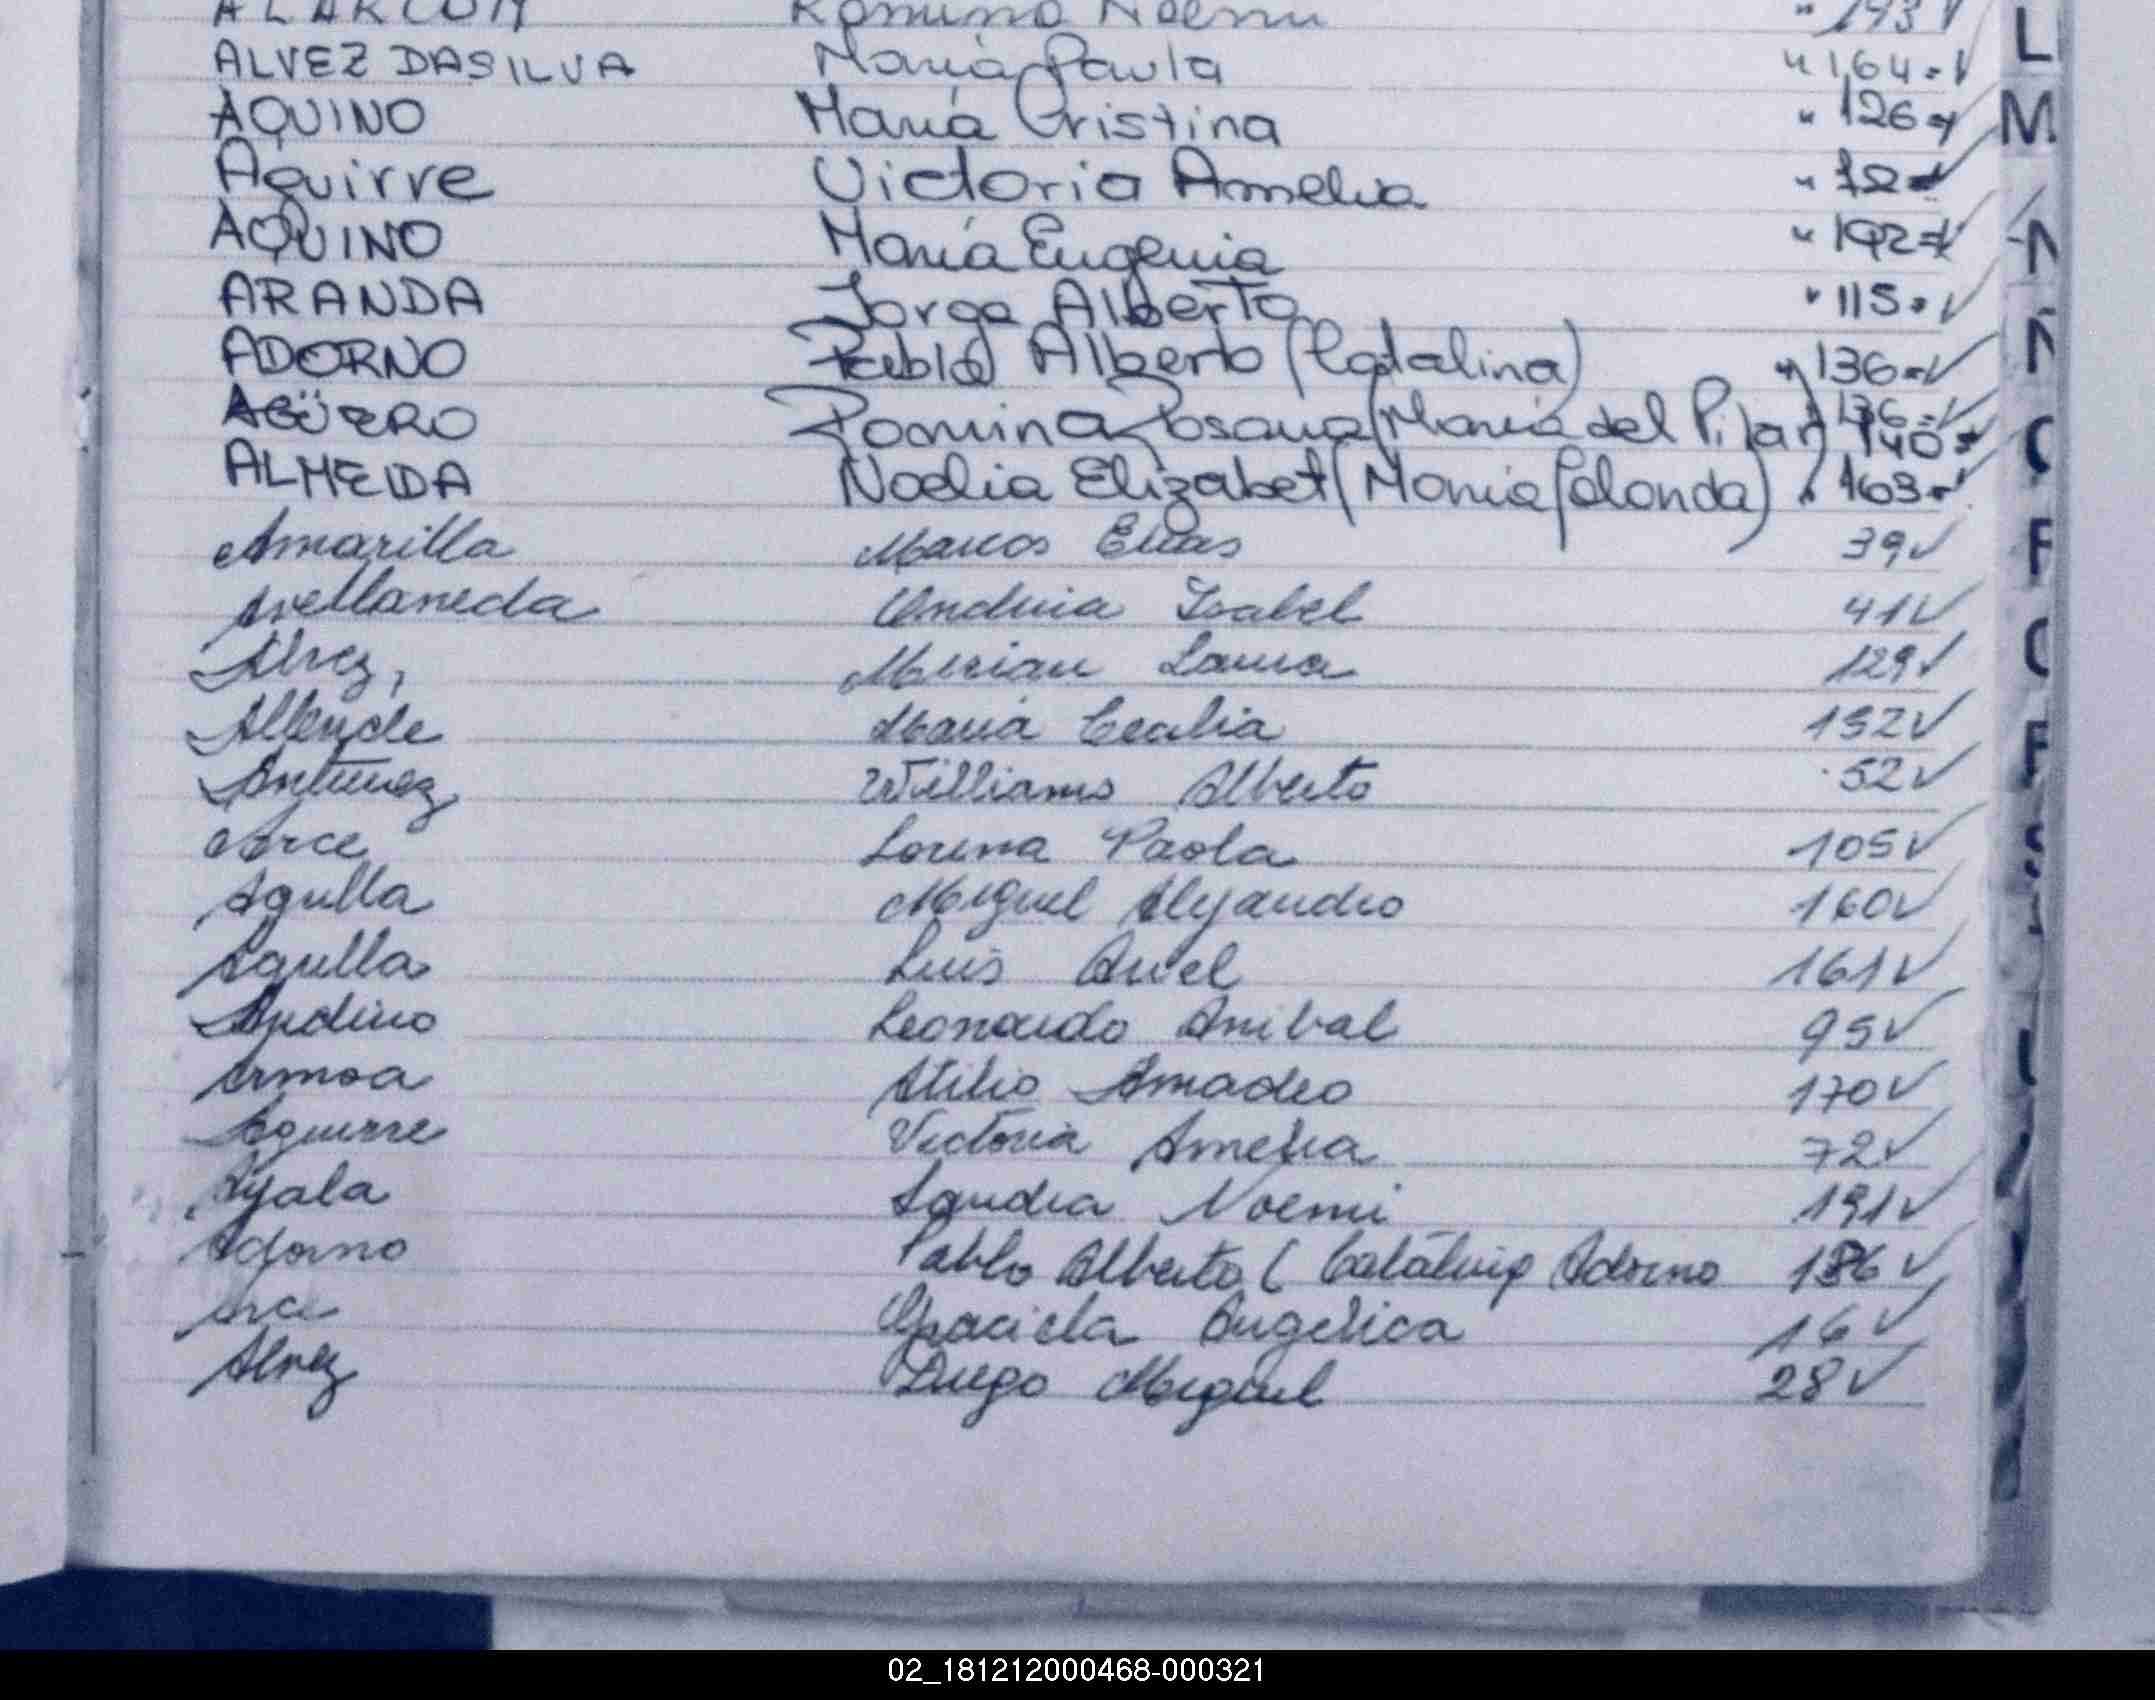 ALARCON Romina Noemi " 143 ✓
ALVEZ DASILVA María Paula " 164.- ✓
AQUINO María Cristina " 126 ✓
Aguirre Victoria Amelia " 72 ✓
AQUINO María Eugenia " 192 ✓
ARANDA Jorge Alberto " 115.- ✓
ADORNO Pablo Alberto (Catalina) " 136 ✓
AGÜERO Romina Rosana (María del Pilar) 140
ALMEIDA Noelia Elizabet (María Yolanda) " 163 ✓
Amarilla Marcos Elias 39 ✓
Avellaneda Andreia Isabel 41 ✓
Alvez, Mirian Laura 129 ✓
Allende María Cecilia 132 ✓
Antunez Williams Alberto 52 ✓
Arce Lorena Paola 105 ✓
Agulla Miguel Alejandro 160 ✓
Agulla Luis Ariel 161 ✓
Andino Leonardo Anibal 95 ✓
Armoa Atilio Amadeo 170 ✓
Aguirre Victoria Amelia 72 ✓
Ayala Sandra Noemi 191 ✓
Adorno Pablo Alberto ( Catalina Adorno 136 ✓
Arce Graciela Angelica 16 ✓
Alvez Diego Miguel 28 ✓
L
M
N
02_181212000468-000321